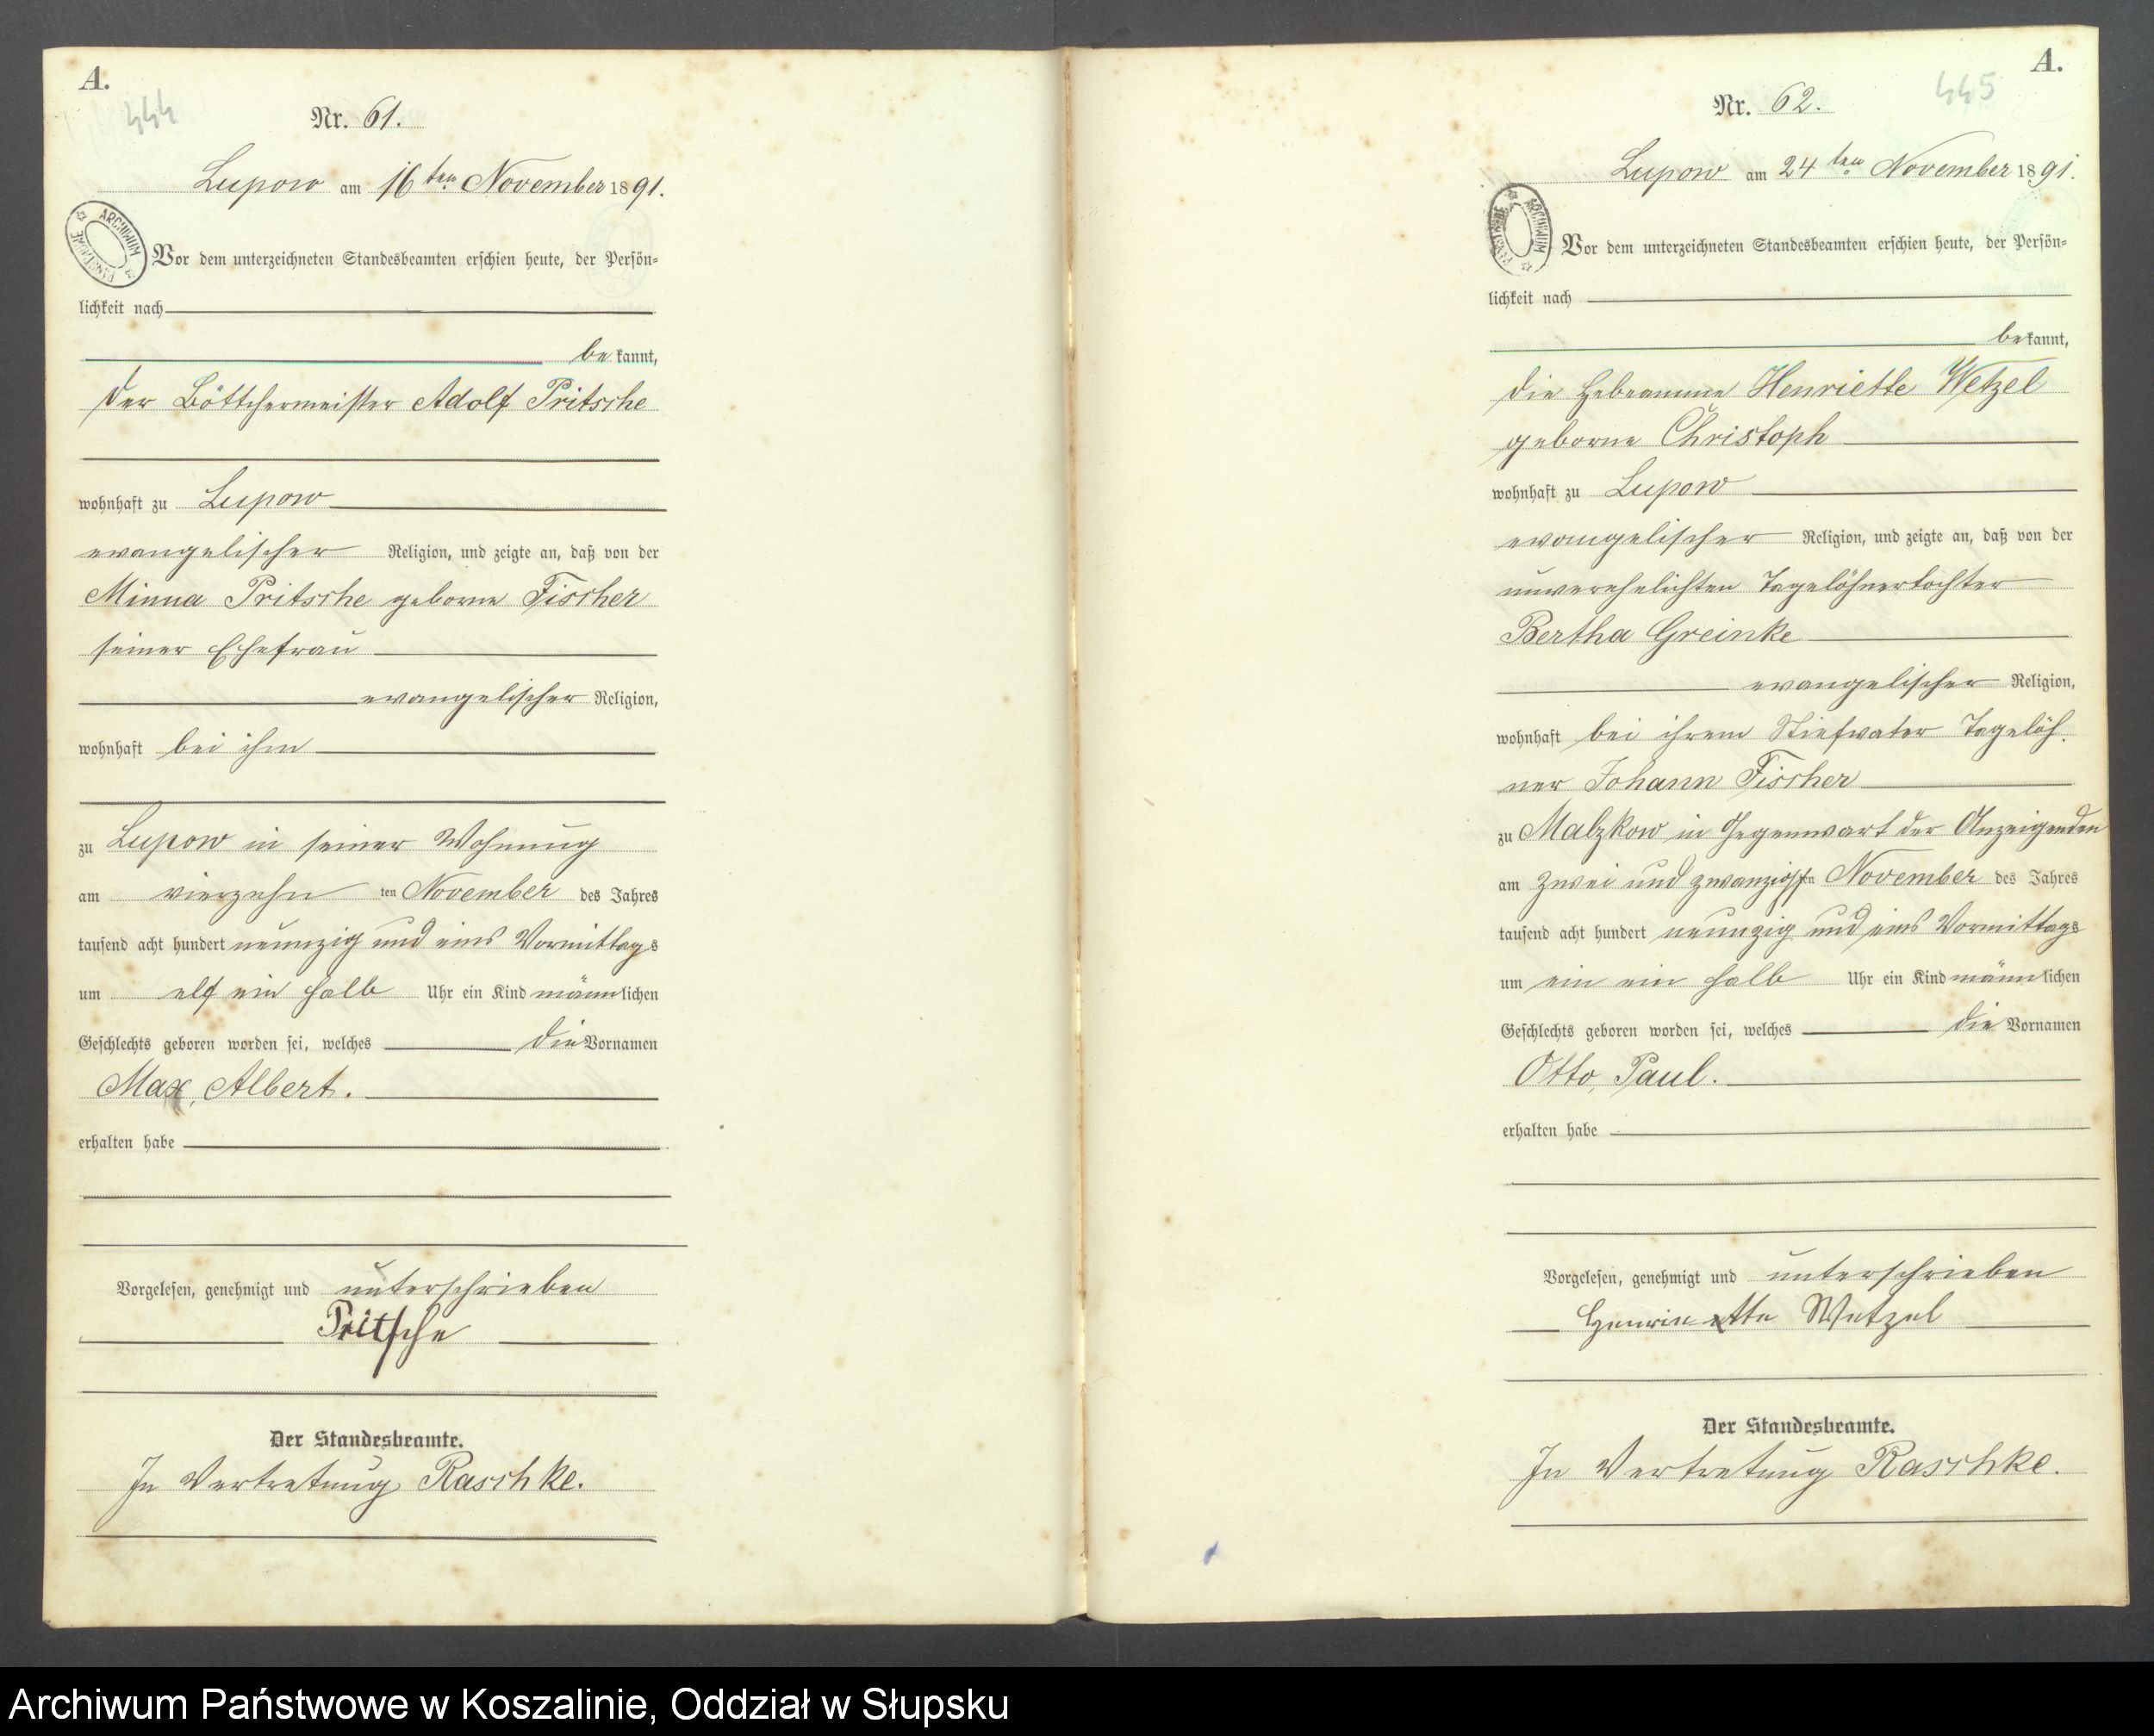 A.
444
Nr. 61.
Lupow am 16ten November 1891.
ARCHIWUM PAŃSTWOWE
Vor dem unterzeichneten Standesbeamten erschien heute, der Persön-
lichkeit nach
bekannt,
der Böttchermeister Adolf Pritsche
wohnhaft zu Lupow
evangelischer Religion, und zeigte an, daß von der
Minna Pritsche geborne Fischer
seiner Ehefrau
evangelischer Religion,
wohnhaft bei ihm
zu Lupow in seiner Wohnung
am vierzehnten November des Jahres
tausend acht hundert neunzig und eins Vormittags
um elf ein halb Uhr ein Kind männlichen
Geschlechts geboren worden sei, welches die Vornamen
Max, Albert.
erhalten habe
Vorgelesen, genehmigt und unterschrieben
Pritsche
Der Standesbeamte.
In Vertretung Raschke.
A.
445
Nr. 62.
Lupow am 24ten November 1891.
ARCHIWUM PAŃSTWOWE
Vor dem unterzeichneten Standesbeamten erschien heute, der Persön-
lichkeit nach
bekannt,
die Hebeamme Henriette Wetzel
geborne Christoph
wohnhaft zu Lupow
evangelischer Religion, und zeigte an, daß von der
unverehelichten Tagelöhnertochter
Bertha Greinke
evangelischer Religion,
wohnhaft bei ihrem Stiefvater Tagelöh-
ner Johann Fischer
zu Malzkow in Gegenwart der Anzeigenden
am zwei und zwanzigsten November des Jahres
tausend acht hundert neunzig und eins Vormittags
um ein ein halb Uhr ein Kind männlichen
Geschlechts geboren worden sei, welches die Vornamen
Otto, Paul.
erhalten habe
Vorgelesen, genehmigt und unterschrieben
Henriette Wetzel
Der Standesbeamte.
In Vertretung Raschke.
Archiwum Państwowe w Koszalinie, Oddział w Słupsku